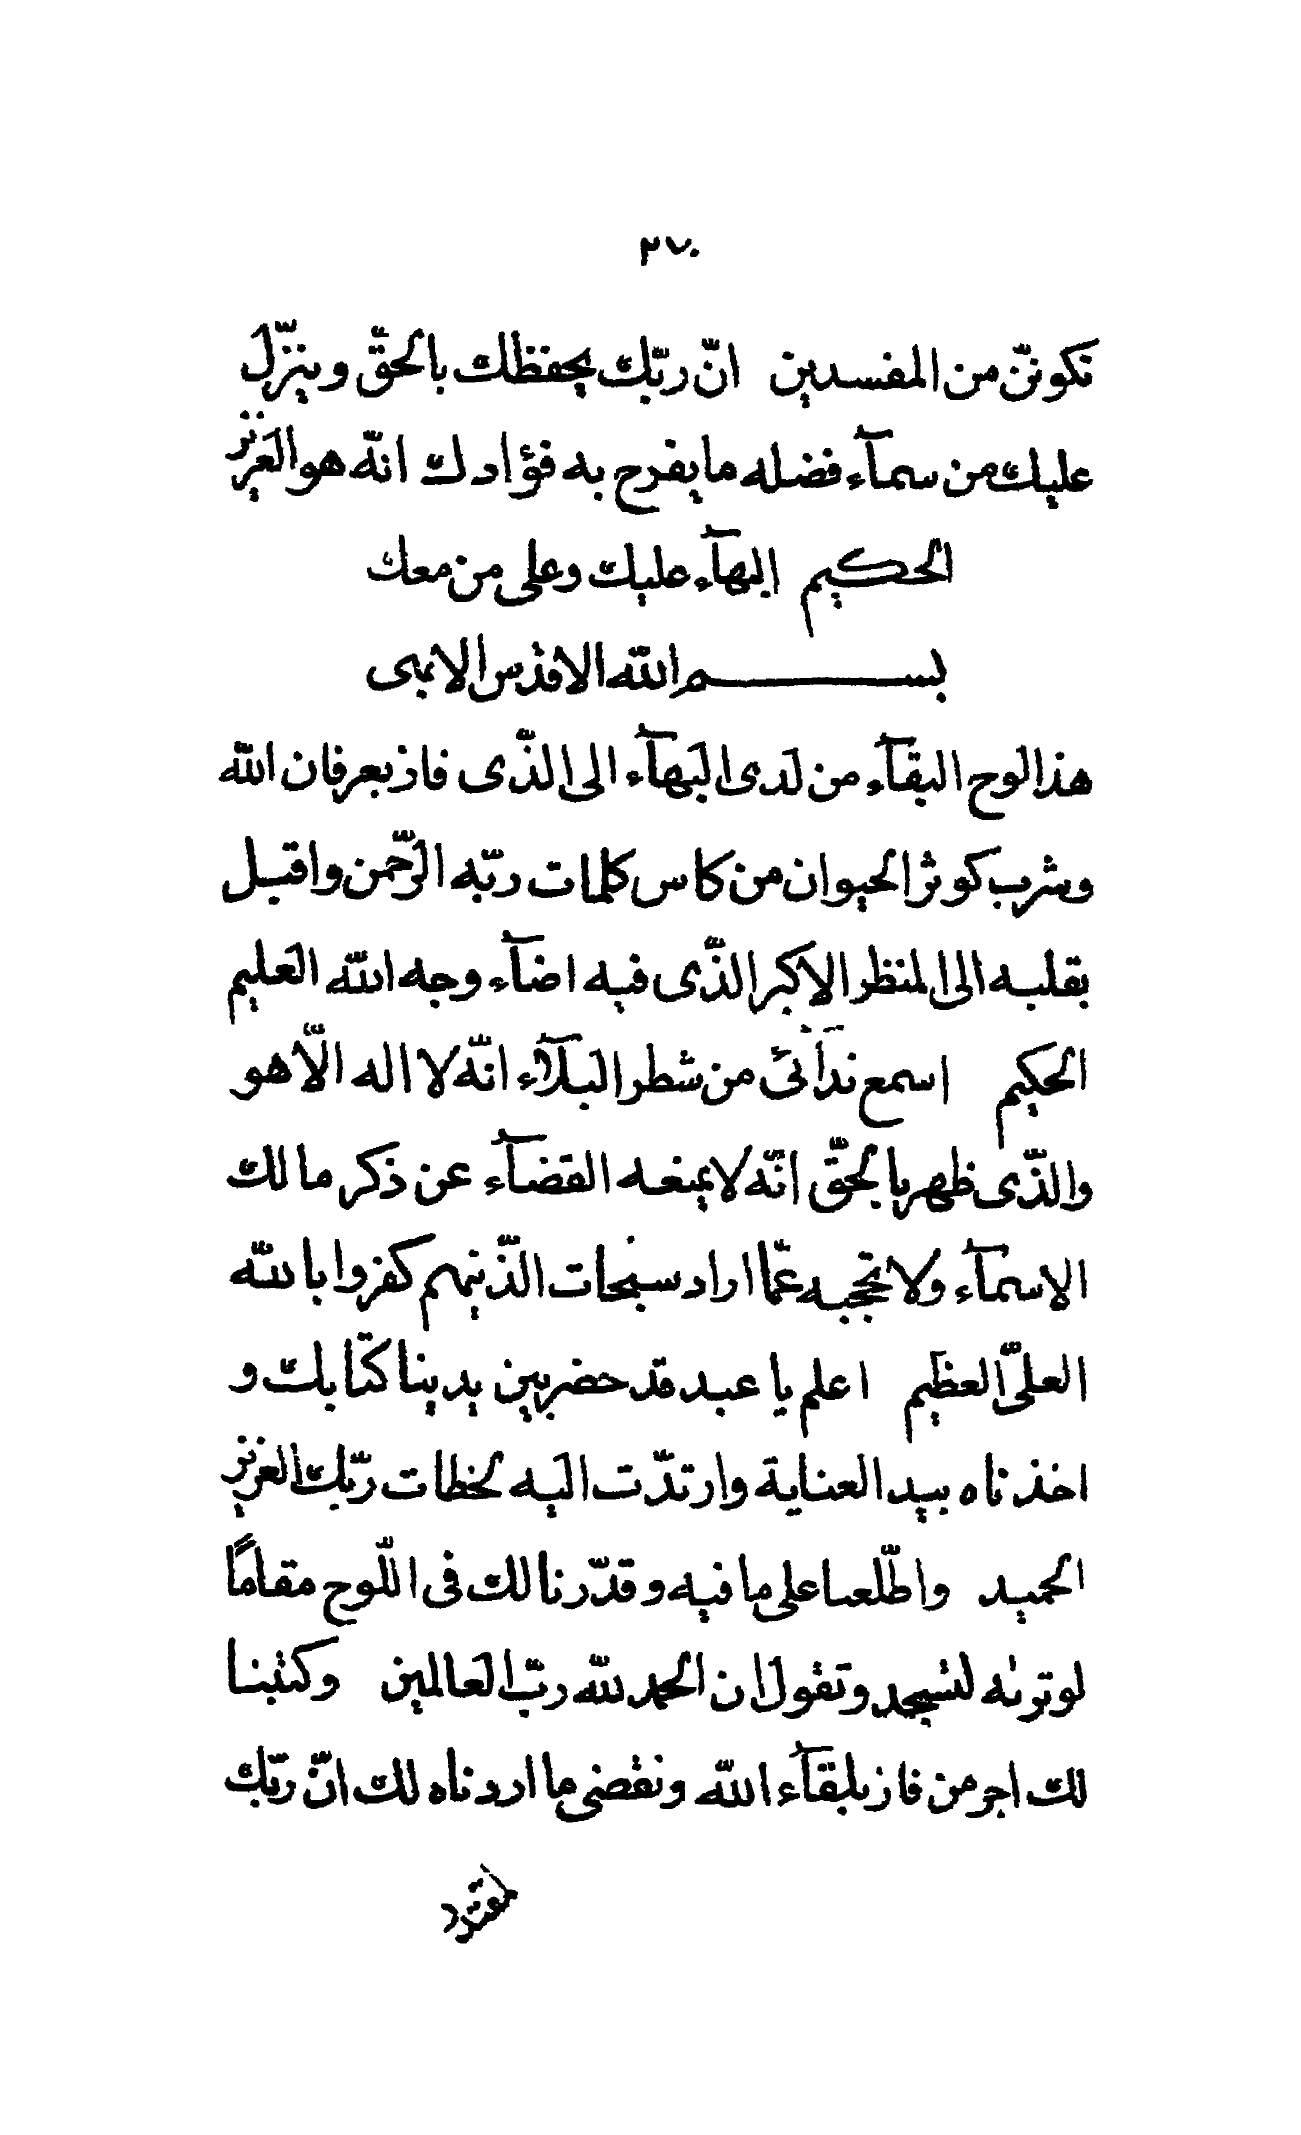 ٢٧٠
تكوننّ من المفسدين انّ ربّك يحفظك بالحقّ وينزّل
عليك من سمآء فضله ما يفرح به فؤادك انّه هو العزيز
الحكيم البهآء عليك وعلى من معك
بسم الله الاقدس الابهى
هذا لوح البقآء من لدى البهآء الى الذّى فاز بعرفان الله
وشرب كوثر الحيوان من كاس كلمات ربّه الرّحمن واقبل
بقلبه الى المنظر الاكبر الذّى فيه اضآء وجه الله العليم
الحكيم اسمع ندآئى من شطر البلآء انّه لا اله الّا هو
والذّى ظهر بالحقّ انّه لا يمنعه القضآء عن ذكر مالك
الاسمآء ولا تحجبه عمّا اراد سبحات الذّينهم كفروا بالله
العلىّ العظيم اعلم يا عبد قد حضر بين يدينا كتابك و
اخذناه بيد العناية وارتدّت اليه لحظات ربّك العزيز
الحميد واطّلعنا على ما فيه وقدّرنا لك فى اللّوح مقاماً
لو ترىه لتسجد وتقول ان الحمد لله ربّ العالمين وكتبنا
لك اجر من فاز بلقآء الله ونقضى ما اردناه لك انّ ربّك
مقتدر